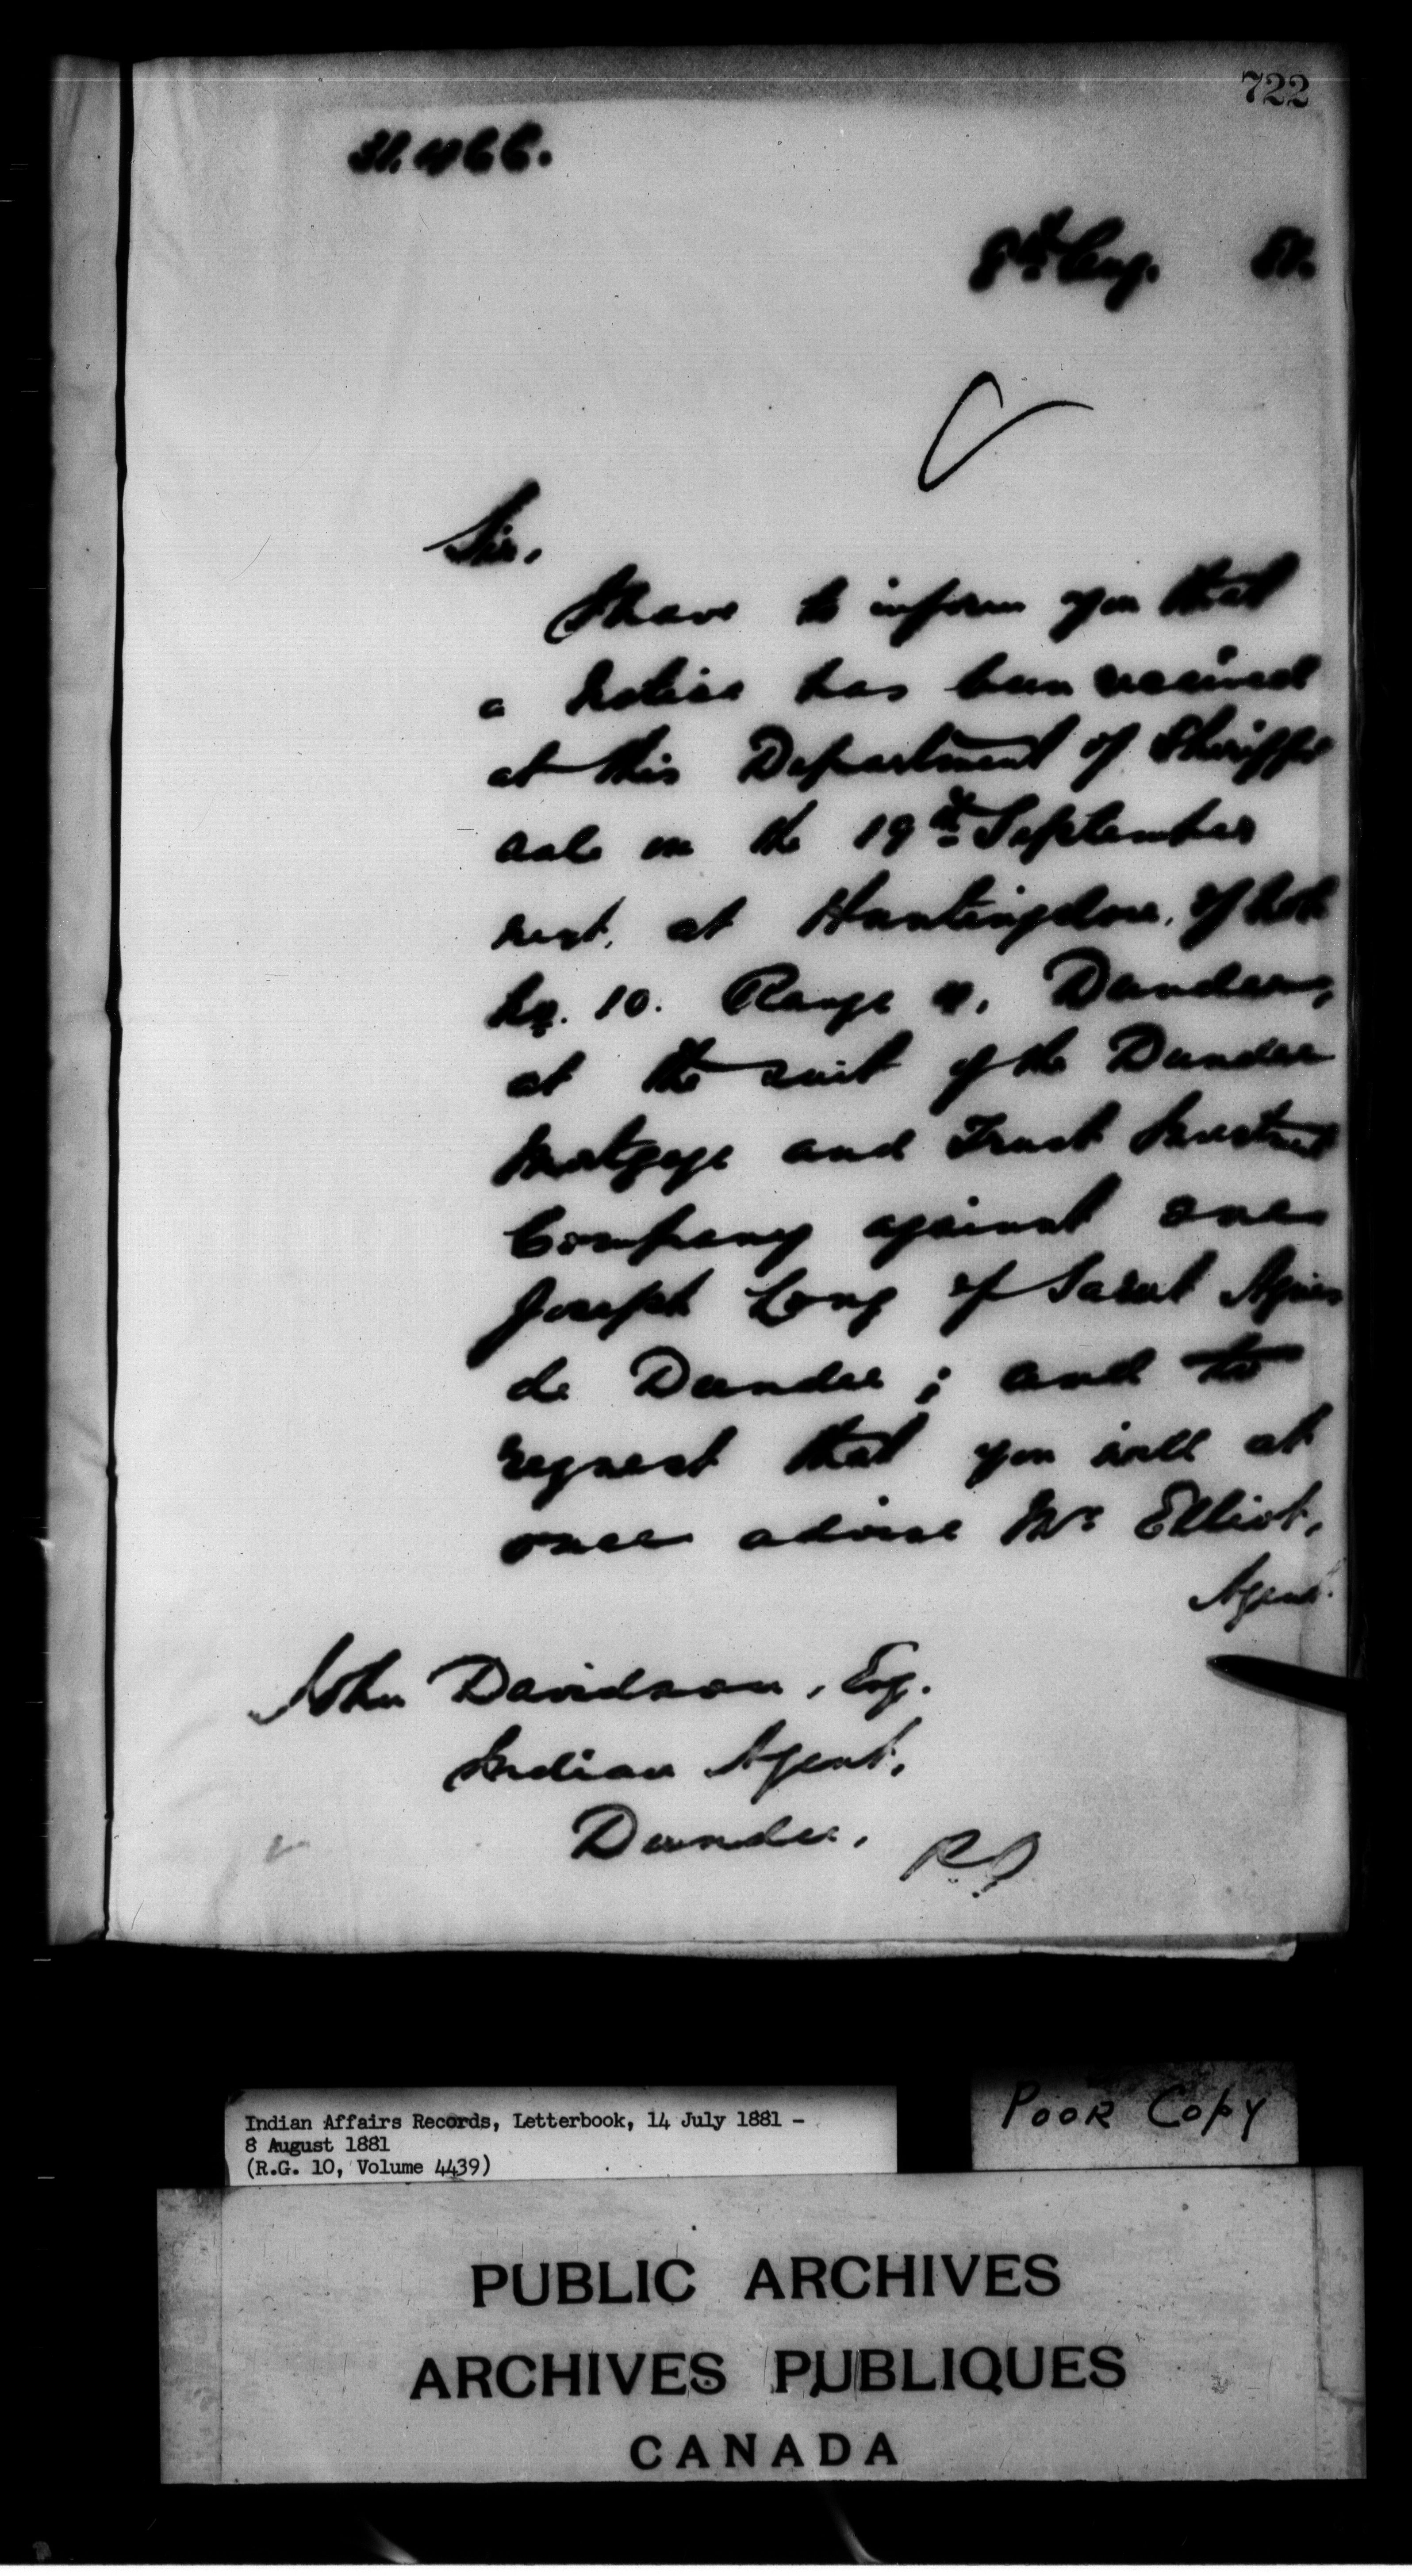 722
8th Aug. 81.
Sir,
I have to inform you that
a notice has been received
at this Department of Sheriff's
sale on the 19th September
next, at Huntingdon, of Lot
No. 10. Range Dundee,
at the suit of the Dundee
Mortgage and Trust Investmt
Company against one
Joseph Long of Saint Agnes
de Dundee; and to
request that you will at
once advise Mr Elliot,
Agent.
John Davidson, Esq.
Indian Agent,
Dundee.
Indian Affairs Records, Letterbook, 14 July 1881 -
8 August 1881
(R.G. 10, Volume 4439)
POOR COPY
PUBLIC ARCHIVES
ARCHIVES PUBLIQUES
CANADA